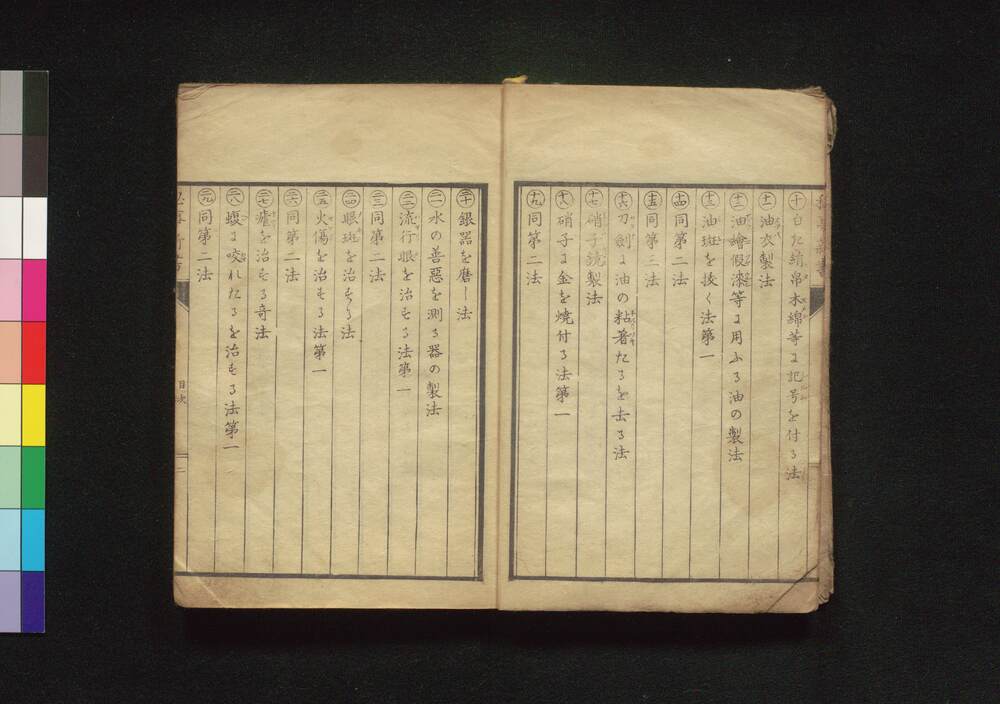 ㊉白た絹帛木綿等に記号を付る法
十一 油衣製法
十二 油繪假漆等に用ふる油の製法
十三 油斑を抜く法第一
十四 同第二法
十五 同第三法
十六 刀劍に油の粘著たるを去る法
十七 硝子鏡製法
十八 硝子に金を焼付る法第一
十九 同第二法
二十 銀器を磨く法
二一 水の善惡を測る器の製法
二二 流行眼を治する法第一
二三 同第二法
二四 眼斑を治する法
二五 火傷を治する法第一
二六 同第二法
二七 瘧を治する奇法
二八 蝮に咬れたるを治する法第一
二九 同第二法
目次
二